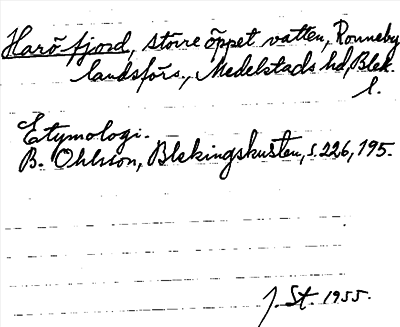 Harö fjord, större öppet vatten, Ronneby
landsförs., Medelstads hd, Blek.
l.
Etymologi.
B. Ohlsson, Blekingskusten, s. 226, 195.
J. St. 1955.